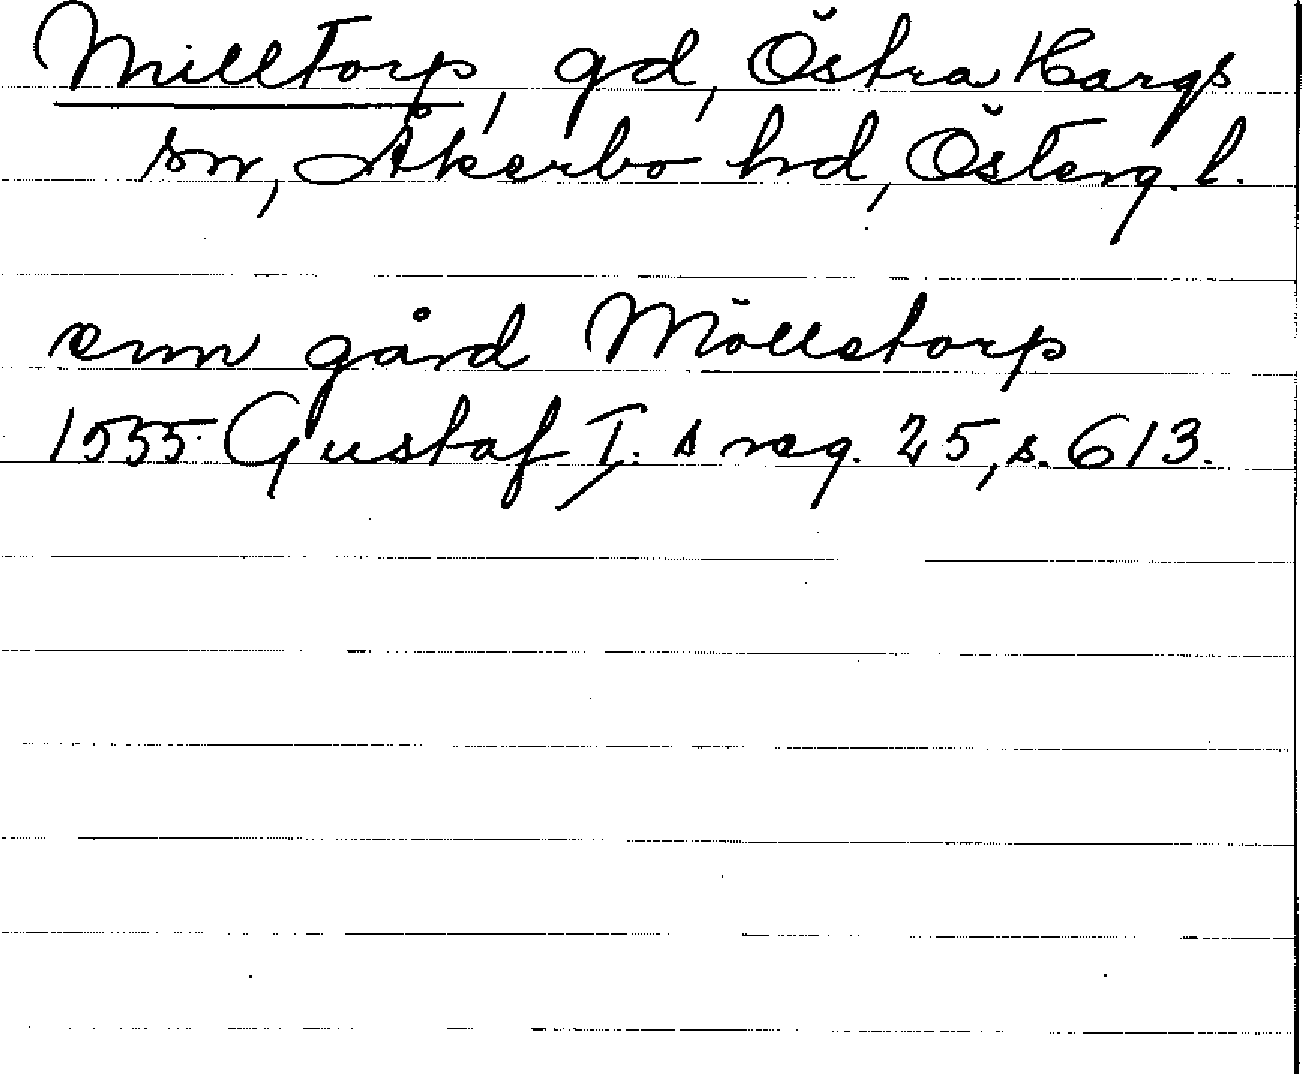 Milltorp, gd, Östra Hargs
sn, Åkerbo hd, Österg. l.
enn gård Mölletorp
1555 Gustaf I:s reg. 25, s. 613.